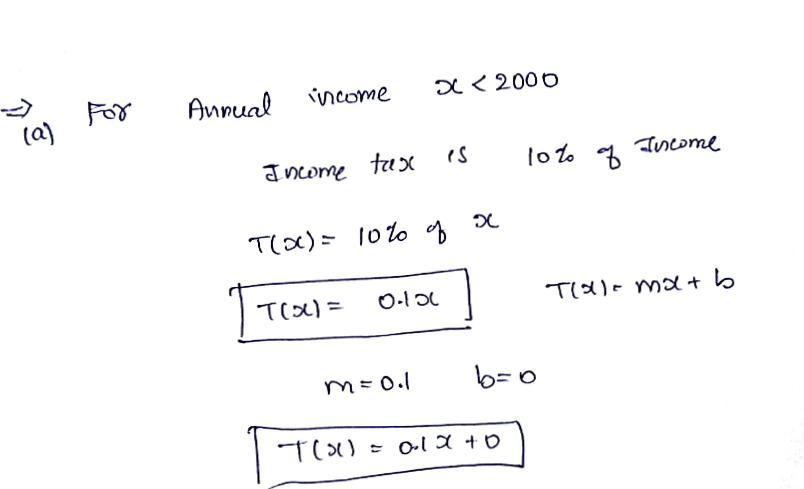 ⇒ (a) For Annual income x < 2000
Income tax is 10% of Income
T(x) = 10% of x
T(x) = 0.1x T(x) = mx + b
m = 0.1 b = 0
T(x) = 0.1x + 0